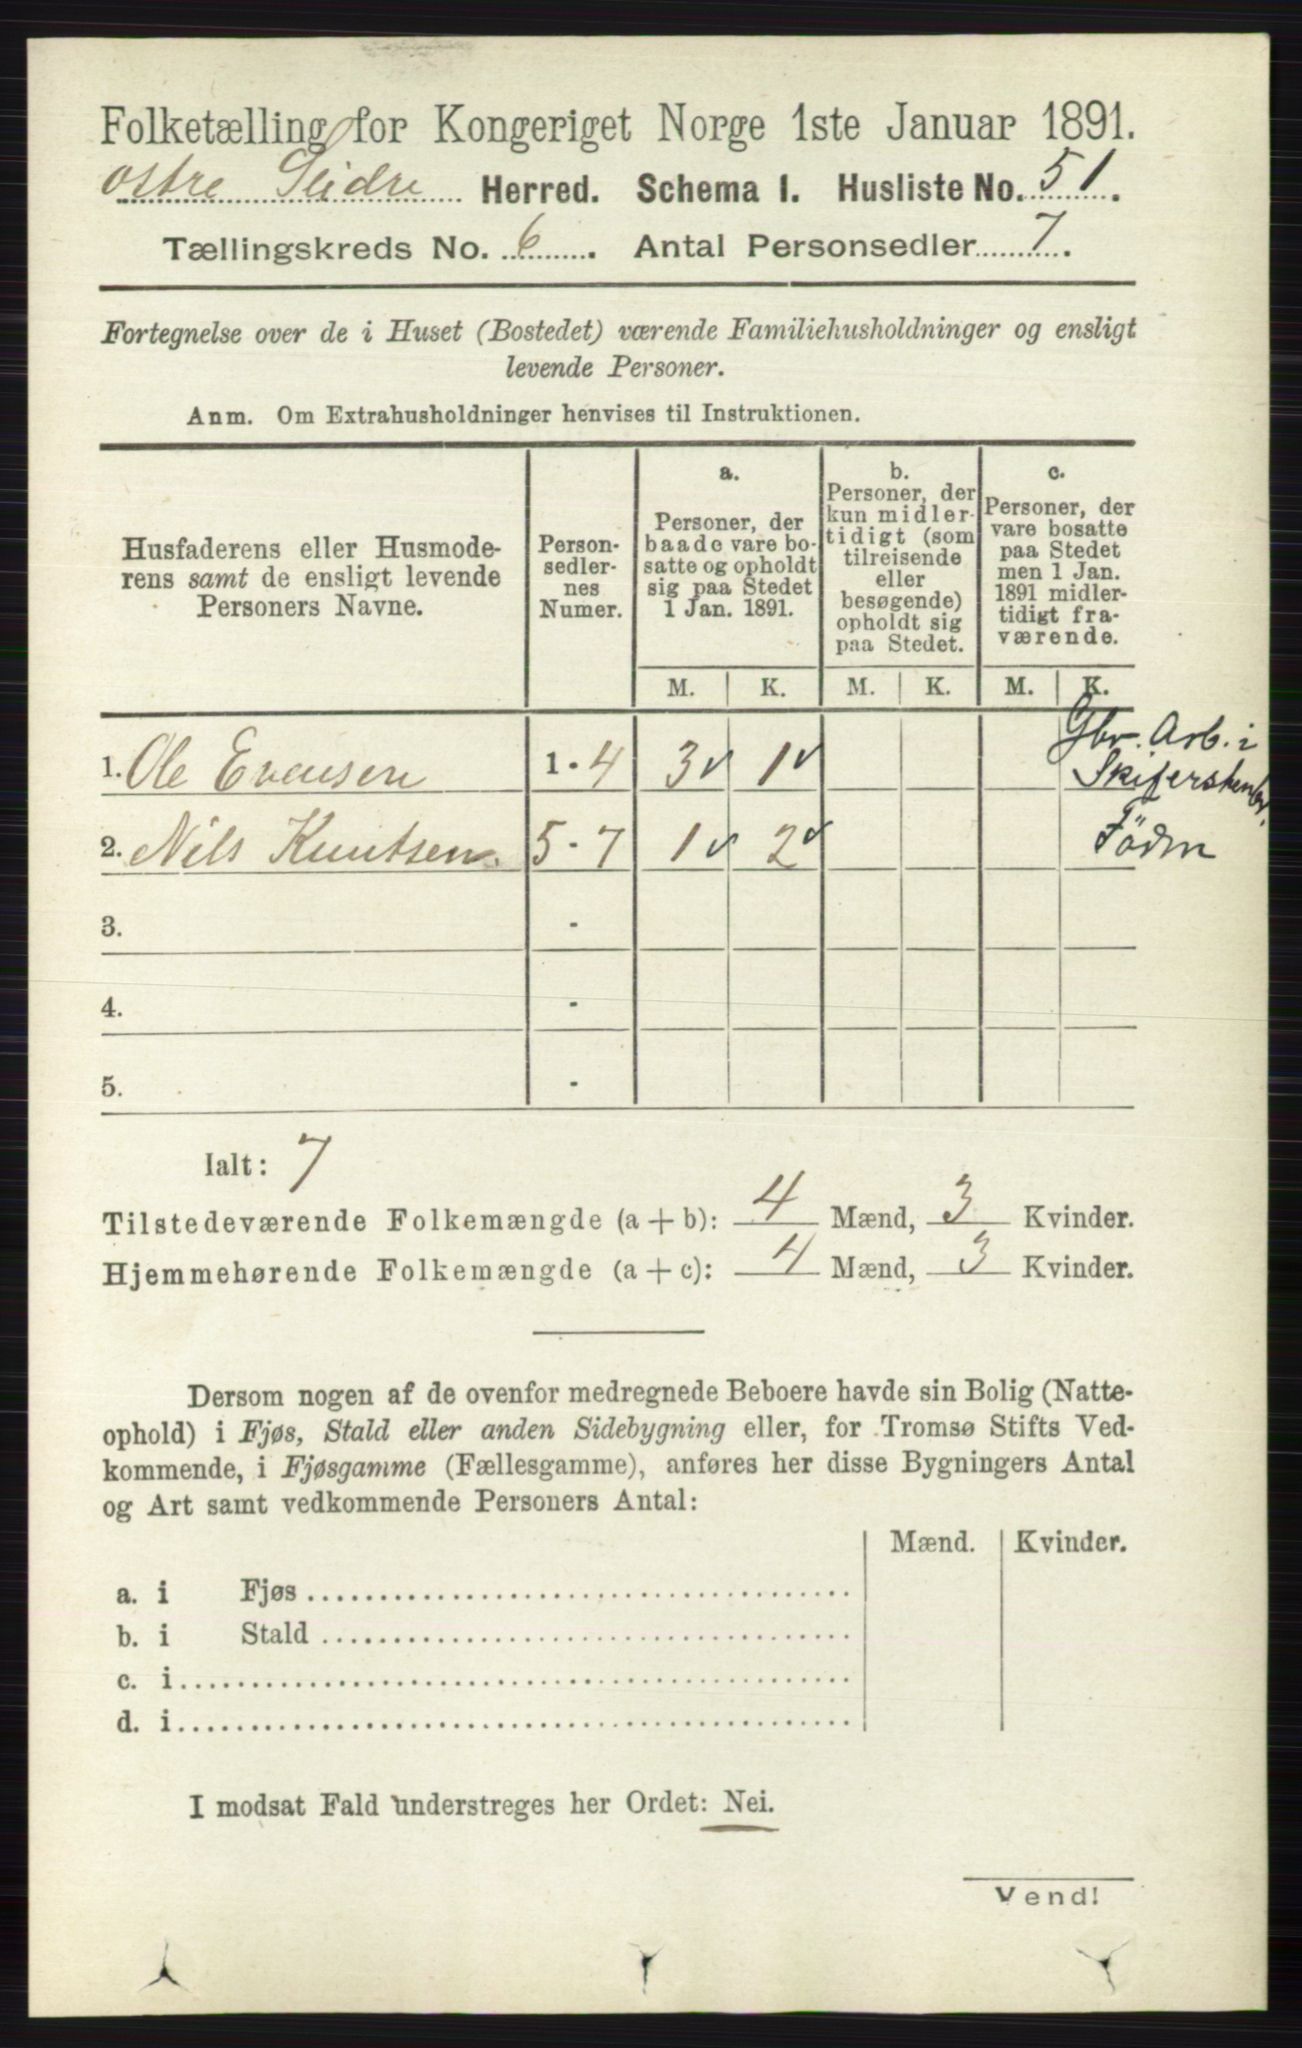 Folketælling for Kongeriget Norge 1ste Januar 1891.
østre Slidre Herred. Schema 1. Husliste No. 51.
Tællingskreds No. 6. Antal Personsedler 7.
Fortegnelse over de i Huset (Bostedet) værende Familiehusholdninger og ensligt
levende Personer.
Anm. Om Extrahusholdninger henvises til Instruktionen.
Husfaderens eller Husmode-
rens samt de ensligt levende
Personers Navne.
Person-
sedler-
nes
Numer.
a.
Personer, der
baade vare bo-
satte og opholdt
sig paa Stedet
1 Jan. 1891.
b.
Personer, der
kun midler-
tidigt (som
tilreisende
eller
besøgende)
opholdt sig
paa Stedet.
c.
Personer, der
vare bosatte
paa Stedet
men 1 Jan.
1891 midler-
tidigt fra-
værende.
M. K. M. K. M. K.
1. Ole Evensen 1 - 4 3 1 Gbr. Arb. i
2. Nils Knutsen. 5 - 7 1 2 Föder
3. -
4. -
5. -
Ialt: 7
Tilstedeværende Folkemængde (a + b): 4 Mænd, 3 Kvinder.
Hjemmehørende Folkemængde (a + c): 4 Mænd, 3 Kvinder.
Dersom nogen af de ovenfor medregnede Beboere havde sin Bolig (Natte-
ophold) i Fjøs, Stald eller anden Sidebygning eller, for Tromsø Stifts Ved-
kommende, i Fjøsgamme (Fællesgamme), anføres her disse Bygningers Antal
og Art samt vedkommende Personers Antal:
Mænd. Kvinder.
a. i Fjøs
b. i Stald
c. i
d. i
I modsat Fald understreges her Ordet: Nei.
Vend!